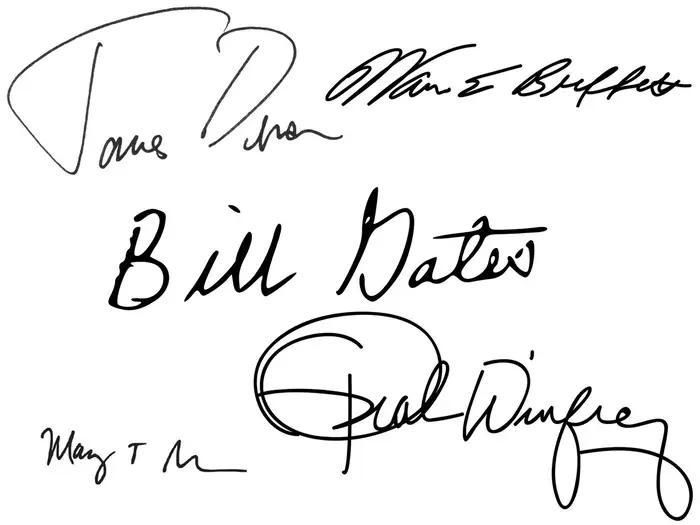 James Dyson
Warren E Buffett
Bill Gates
Oprah Winfrey
Mary T